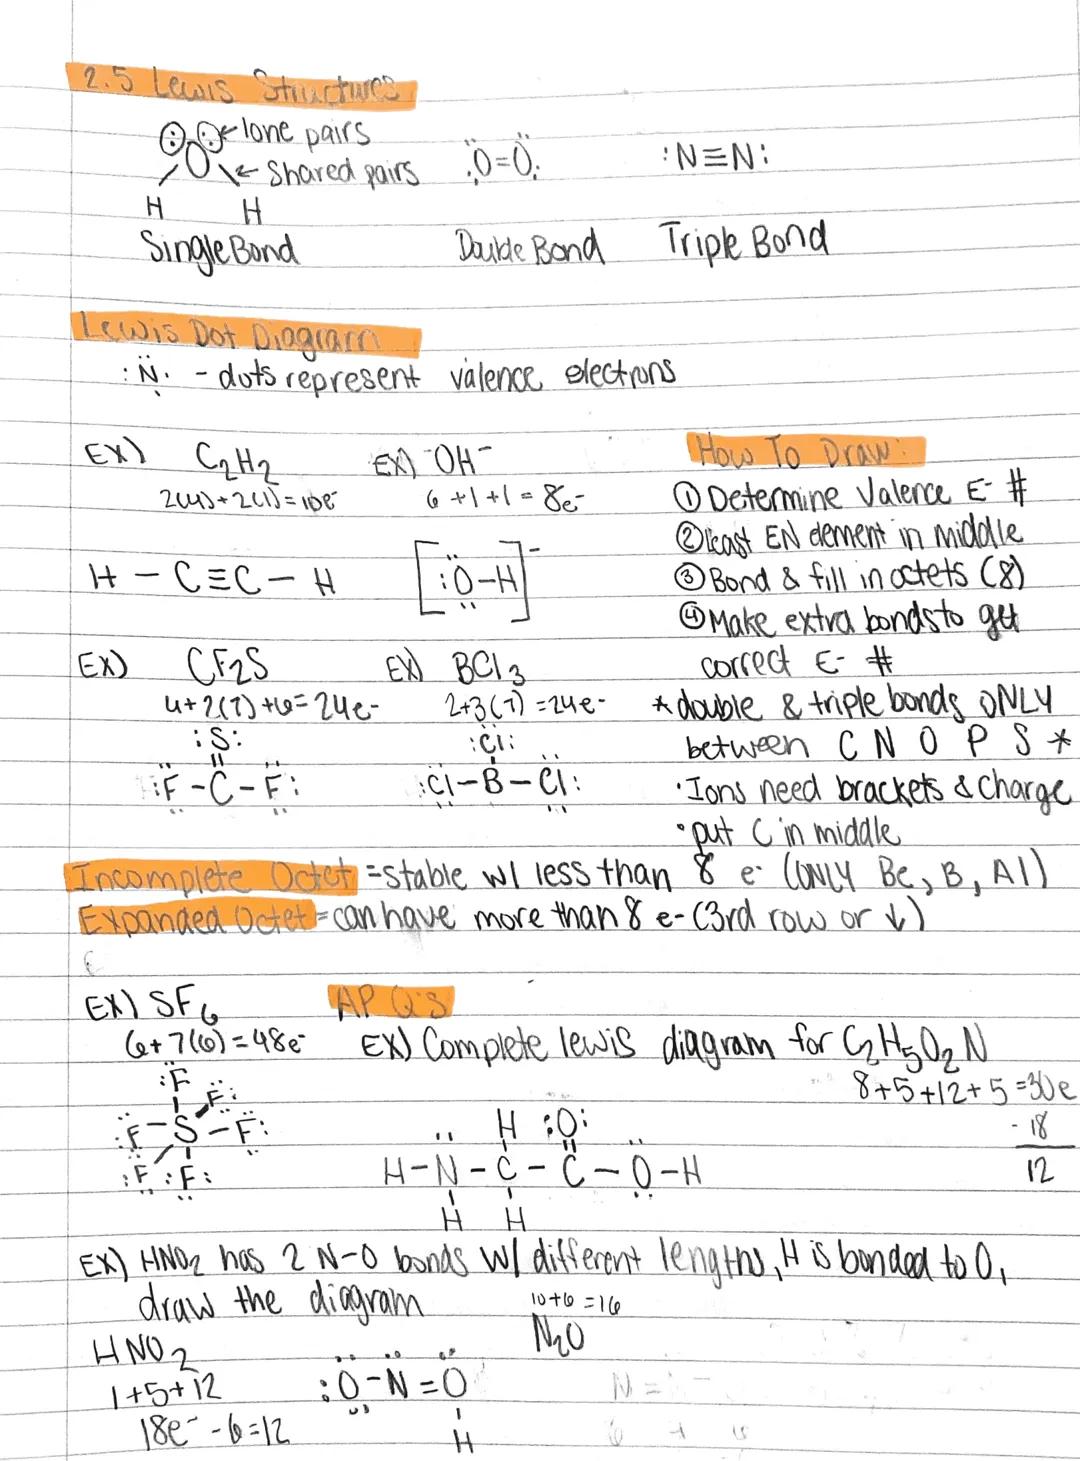 2.5 Lewis Structures
lone pairs
O ← Shared pairs :O=O: :N≡N:
H H
Single Bond Double Bond Triple Bond
Lewis Dot Diagram
:N. - dots represent valence electrons
EX) C₂H₂ EX) OH⁻ How To Draw:
2(4)+2(1)=10e⁻ 6+1+1=8e- ① Determine Valence E- #
② least EN element in middle
H - C≡C - H [:O-H]⁻ ③ Bond & fill in octets (8)
④ Make extra bonds to get
EX) CF₂S EX) BCl₃ correct E- #
4+2(7)+6=24e- 2+3(7)=24e- * double & triple bonds ONLY
:S: :Cl: between C N O P S *
:F-C-F: :Cl-B-Cl: · Ions need brackets & charge
· put C in middle
Incomplete Octet = stable w/ less than 8 e- (ONLY Be, B, Al)
Expanded Octet = can have more than 8 e- (3rd row or ↓)
EX) SF₆ AP Q's
6+7(6)=48e⁻ EX) Complete lewis diagram for C₂H₅O₂N
:F F: 8+5+12+5=30e
:F-S-F: H :O: - 18
:F :F: H-N-C-C-O-H 12
H H
EX) HNO₂ has 2 N-O bonds w/ different lengths, H is bonded to O,
draw the diagram 10+6=16
HNO₂ N₂O
1+5+12 :O-N=O N=
18e⁻-6=12 H